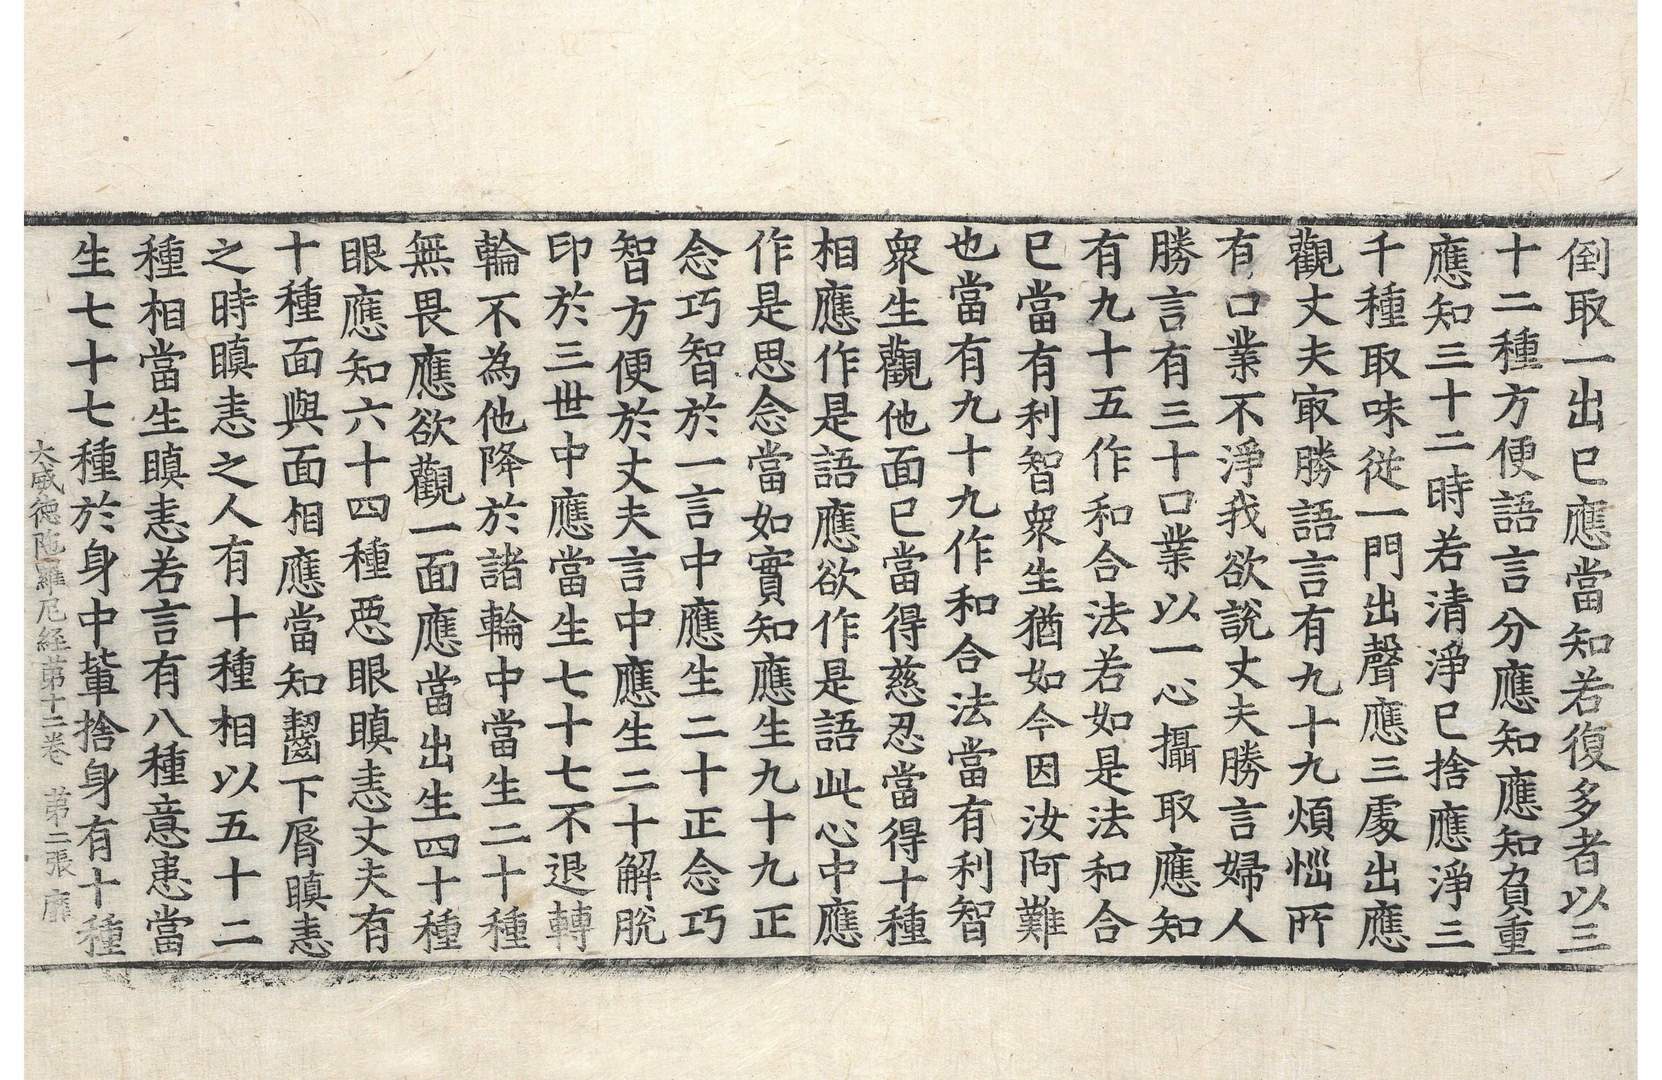 倒取一出巳應當知若復多者以三
十二種方便語言分應知應知負重
應知三十二時若清淨巳捨應淨三
千種取味從一門出聲應三處出應
觀丈夫㝡勝語言有九十九煩惱所
有口業不淨我欲說丈夫勝言婦人
勝言有三十口業以一心攝取應知
有九十五作和合法若如是法和合
巳當有利智衆生猶如今因汝阿難
也當有九十九作和合法當有利智
衆生觀他面巳當得慈忍當得十種
相應作是語應欲作是語此心中應
作是思念當如實知應生九十九正
念巧智於一言中應生二十正念巧
智方便於丈夫言中應生二十解脫
印於三世中應當生七十七不退轉
輪不為他降於諸輪中當生二十種
無畏應欲觀一面應當出生四十種
眼應知六十四種惡眼瞋恚丈夫有
十種面與面相應當知齧下脣瞋恚
之時瞋恚之人有十種相以五十二
種相當生瞋恚若言有八種意恚當
生七十七種於身中輩捨身有十種
大威德陁羅尼經第十二卷 第二張 靡